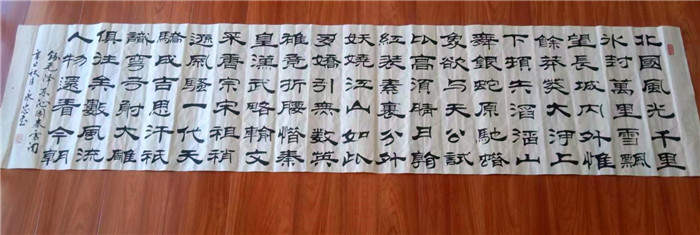 北國風光千里
冰封萬里雪飄
望長城內外惟
餘莽莽大河上
下頓失滔滔山
舞銀蛇原馳蠟
象欲與天公試
比高須晴日看
紅裝素裹分外
妖嬈江山如此
多嬌引無數英
雄竟折腰惜秦
皇漢武略輸文
采唐宗宋祖稍
遜風騷一代天
驕成吉思汗祇
識彎弓射大雕
俱往矣數風流
人物還看今朝
錄毛澤東沁園春雪詞